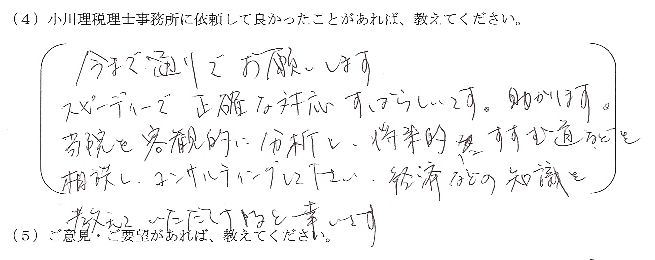 (4) 小川理税理士事務所に依頼して良かったことがあれば、教えてください。
今まで通りでお願いします
スピーディーで 正確な対応 すばらしいです。助かります。
当院を客観的に分析し、将来的 すすむ道などを
相談し、コンサルティングして下さい、経済などの知識を
教えていただけますと幸いです
(5) ご意見・ご要望があれば、教えてください。